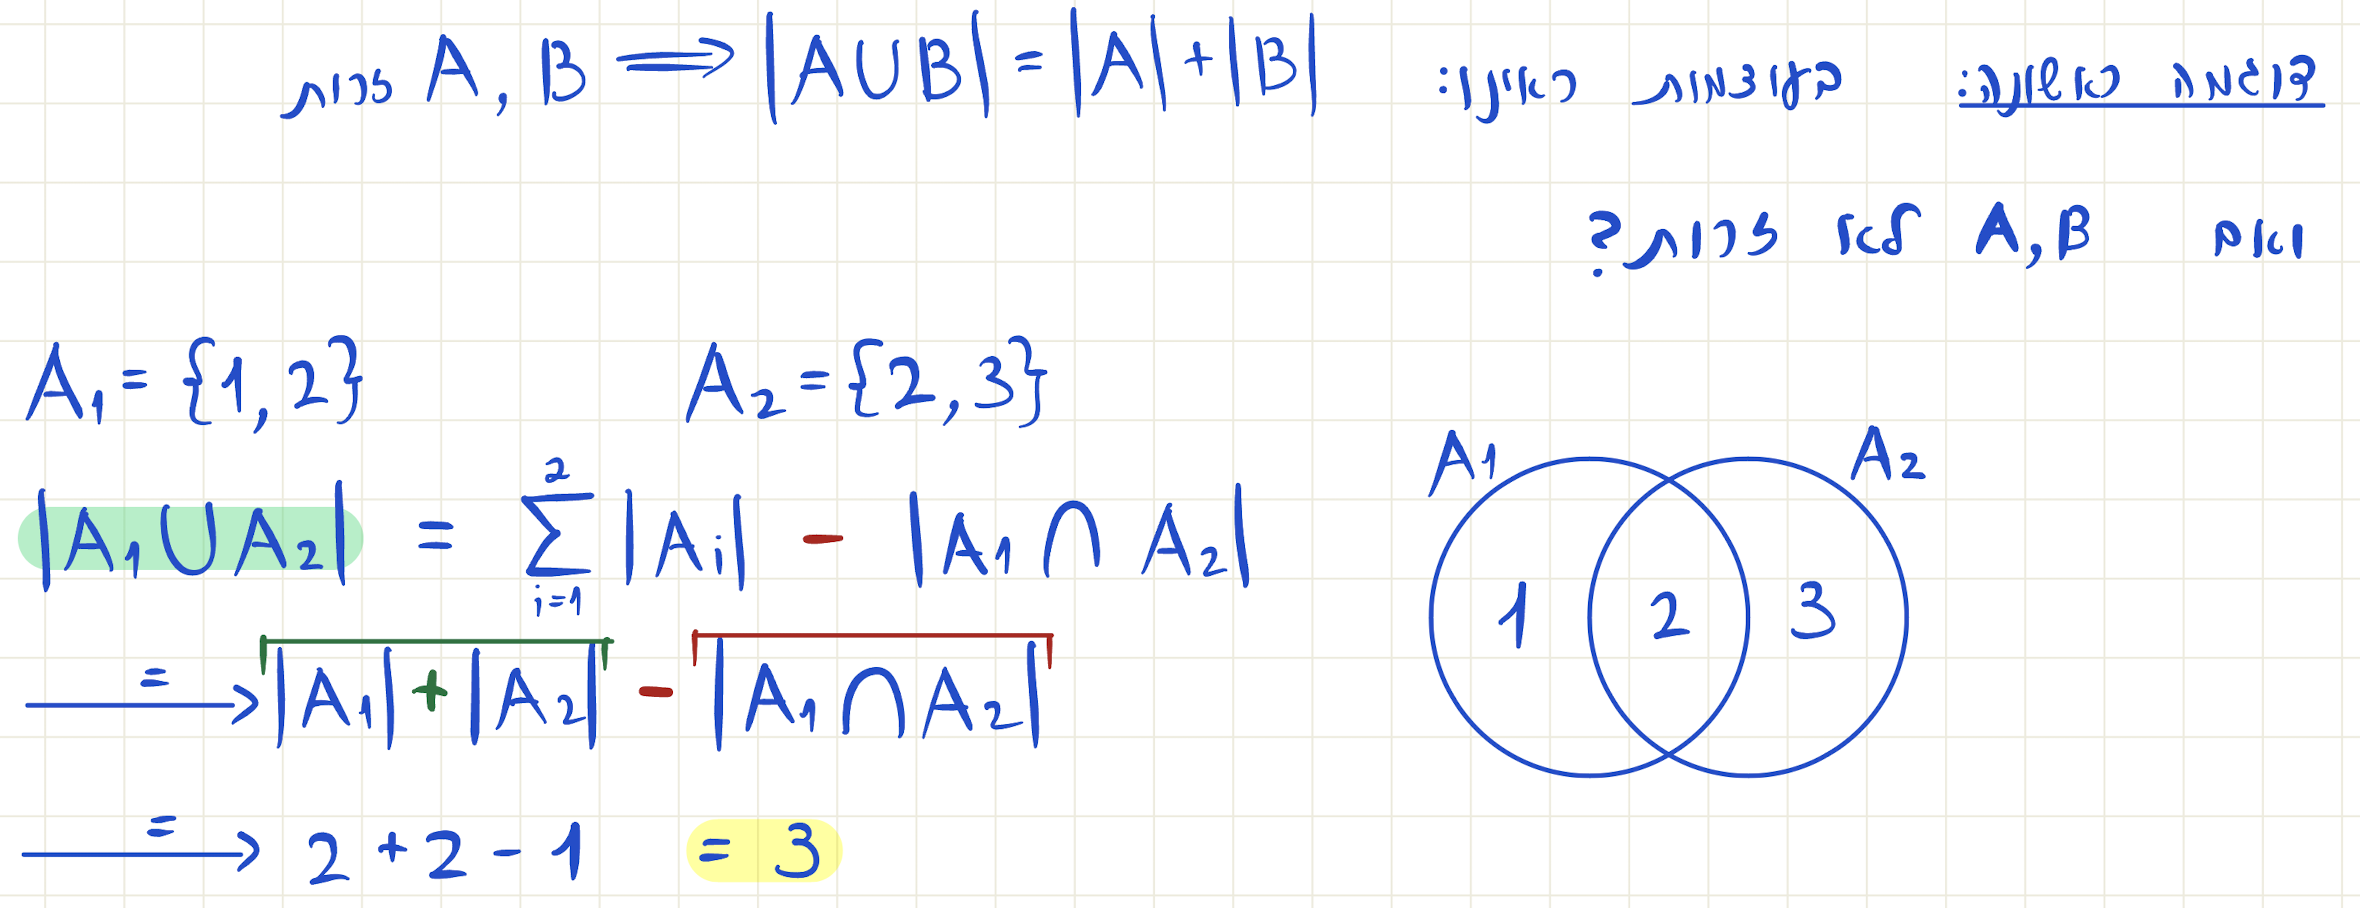 דוגמה ראשונה: בעוצמות ראינו: A, B זרות ⟹ |A∪B| = |A| + |B|
ואם A,B לא זרות?
A₁ = {1, 2} A₂ = {2, 3}
|A₁ ∪ A₂| = ∑_{i=1}^{2} |Aᵢ| − |A₁ ∩ A₂|
=⟶ |A₁| + |A₂| − |A₁ ∩ A₂|
=⟶ 2 + 2 − 1 = 3
A₁ A₂
1 2 3